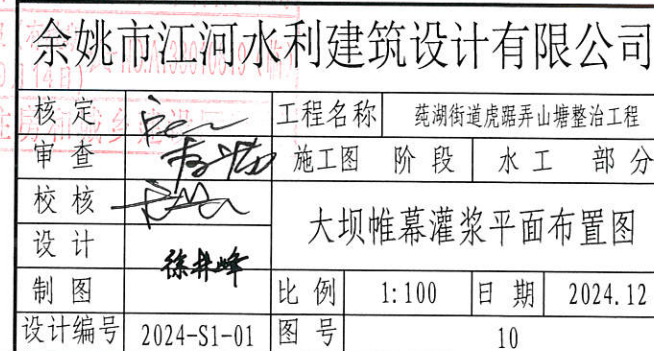 余姚市江河水利建筑设计有限公司
核定 工程名称 莼湖街道虎踞弄山塘整治工程
审查 施工图 阶段 水工 部分
校核 大坝帷幕灌浆平面布置图
设计 徐井峰
制图 比例 1:100 日期 2024.12
设计编号 2024-S1-01 图号 10